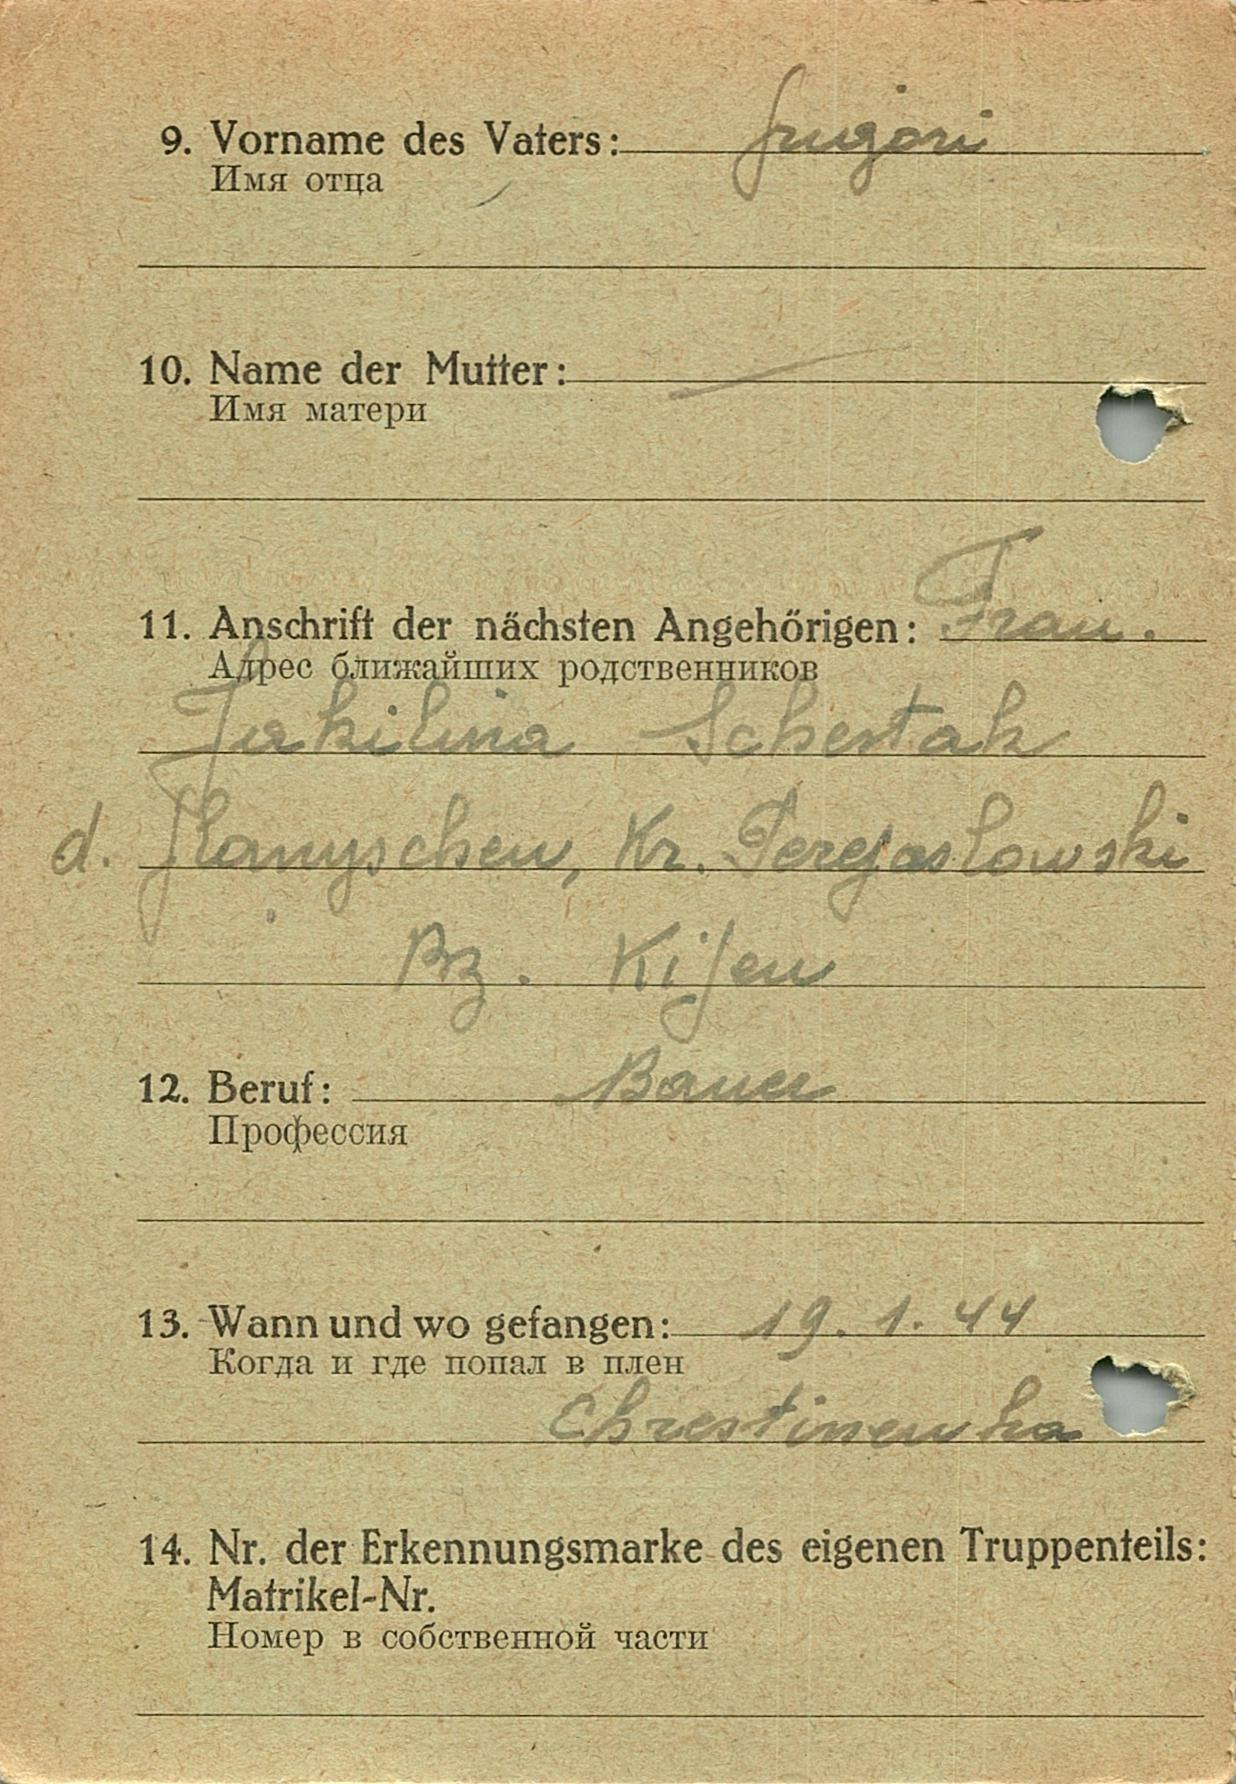 9. Vorname des Vaters: Grigori
Имя отца
10. Name der Mutter: —
Имя матери
11. Anschrift der nächsten Angehörigen: Frau.
Адрес ближайших родственников
Jakilina Schestak
d. Kr. Perejaslowski
Kijew
12. Beruf: Bauer
Профессия
13. Wann und wo gefangen: 19. 1. 44
Когда и где попал в плен
Chrestinewka
14. Nr. der Erkennungsmarke des eigenen Truppenteils:
Matrikel-Nr.
Номер в собственной части